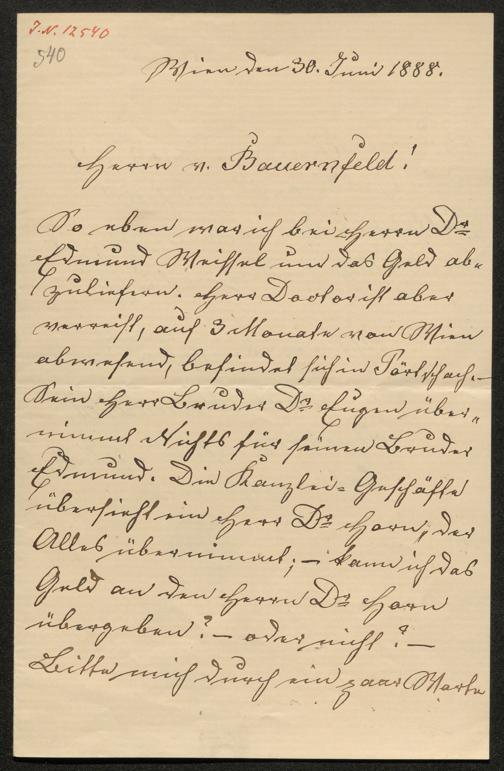 J.N. 12540
540
Wien den 30. Juni 1888.
Herrn v. Bauernfeld!
So eben war ich bei Herrn Dr
Edmund Weissel um das Geld ab-
zuliefern. Herr Doctor ist aber
verreist, auf 3 Monate von Wien
abwesend, befindet sich in Pörtschach.–
Sein Herr Bruder Dr Eugen über-
nimmt Nichts für seinen Bruder
Edmund. Die Kanzlei-Geschäfte
übersieht ein Herr Dr Horn, der
Alles übernimmt; – kann ich das
Geld an den Herrn Dr Horn
übergeben? – oder nicht? –
Bitte mich durch ein paar Worte